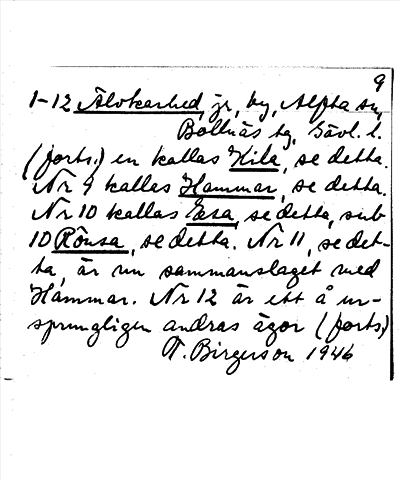 9
1-12 Älvkarhed, jr, by, Alfta sn,
Bollnäs tg, Gävl. l.
(forts.) en kallas Kila, se detta.
Nr 9 kallas Hammar, se detta.
Nr 10 kallas Easa, se detta, sub
10 Rönsa, se detta. Nr 11, se det-
ta, är nu sammanslaget med
Hammar. Nr 12 är ett å ur-
sprungligen andras ägor (forts.)
T. Birgerson 1946